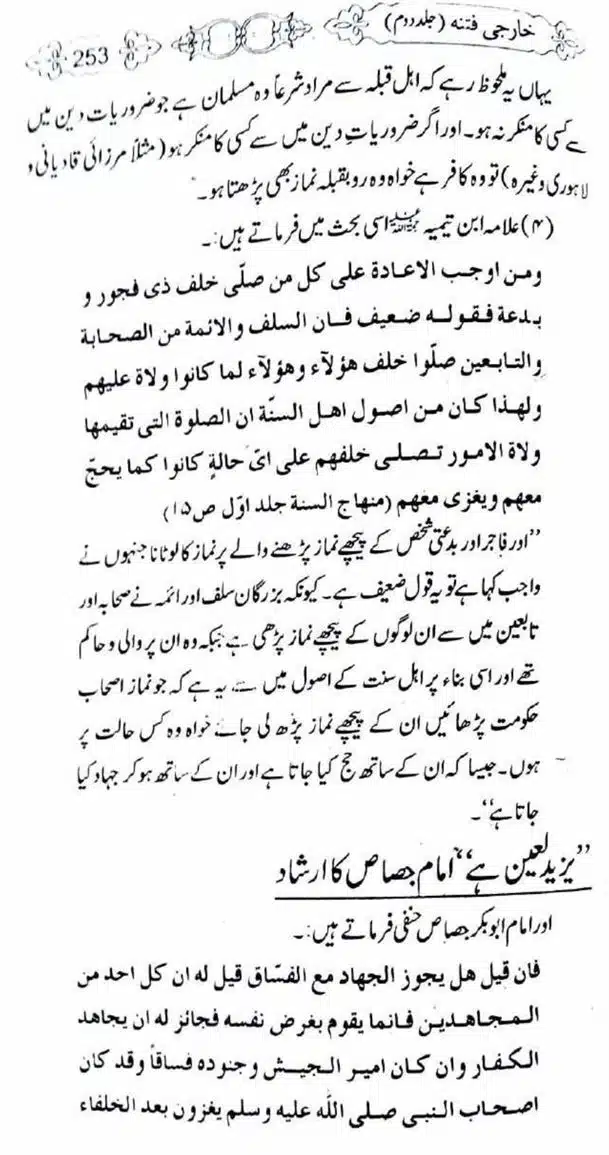 خارجی فتنہ (جلد دوم)
253
یہاں یہ ملحوظ رہے کہ اہل قبلہ سے مراد شرعاً وہ مسلمان ہے جو ضروریات دین میں
سے کسی کا منکر نہ ہو۔ اور اگر ضروریاتِ دین میں سے کسی کا منکر ہو (مثلاً مرزائی قادیانی و
لاہوری وغیرہ) تو وہ کافر ہے خواہ وہ رو بقبلہ نماز بھی پڑھتا ہو۔
(۴) علامہ ابن تیمیہ رحمۃ اللہ علیہ اسی بحث میں فرماتے ہیں:۔
ومن اوجب الاعادة على كل من صلّى خلف ذى فجور و
بدعة فقوله ضعيف فان السلف والائمة من الصحابة
والتابعين صلّوا خلف هؤلآء وهؤلآء لما كانوا ولاة عليهم
ولهذا كان من اصول اهل السنّة ان الصلوة التى تقيمها
ولاة الامور تصلى خلفهم على اىّ حالةٍ كانوا كما يحجّ
معهم ويغزى معهم (منهاج السنة جلد اوّل ص ۱۵)
”اور فاجر اور بدعتی شخص کے پیچھے نماز پڑھنے والے پر نماز کا لوٹانا جنہوں نے
واجب کہا ہے تو یہ قول ضعیف ہے۔ کیونکہ بزرگان سلف اور ائمہ نے صحابہ اور
تابعین میں سے ان لوگوں کے پیچھے نماز پڑھی ہے جبکہ وہ ان پر والی و حاکم
تھے اور اسی بناء پر اہل سنت کے اصول میں سے یہ ہے کہ جو نماز اصحاب
حکومت پڑھائیں ان کے پیچھے نماز پڑھ لی جائے خواہ وہ کس حالت پر
ہوں۔ جیسا کہ ان کے ساتھ حج کیا جاتا ہے اور ان کے ساتھ ہو کر جہاد کیا
جاتا ہے“۔
”یزید لعین ہے“ امام جصاص کا ارشاد
اور امام ابوبکر جصاص حنفی فرماتے ہیں:۔
فان قيل هل يجوز الجهاد مع الفسّاق قيل له ان كل احد من
المجاهدين فانما يقوم بغرض نفسه فجائز له ان يجاهد
الكفار وان كان امير الجيش وجنوده فساقاً وقد كان
اصحاب النبى صلى الله عليه وسلم يغزون بعد الخلفاء